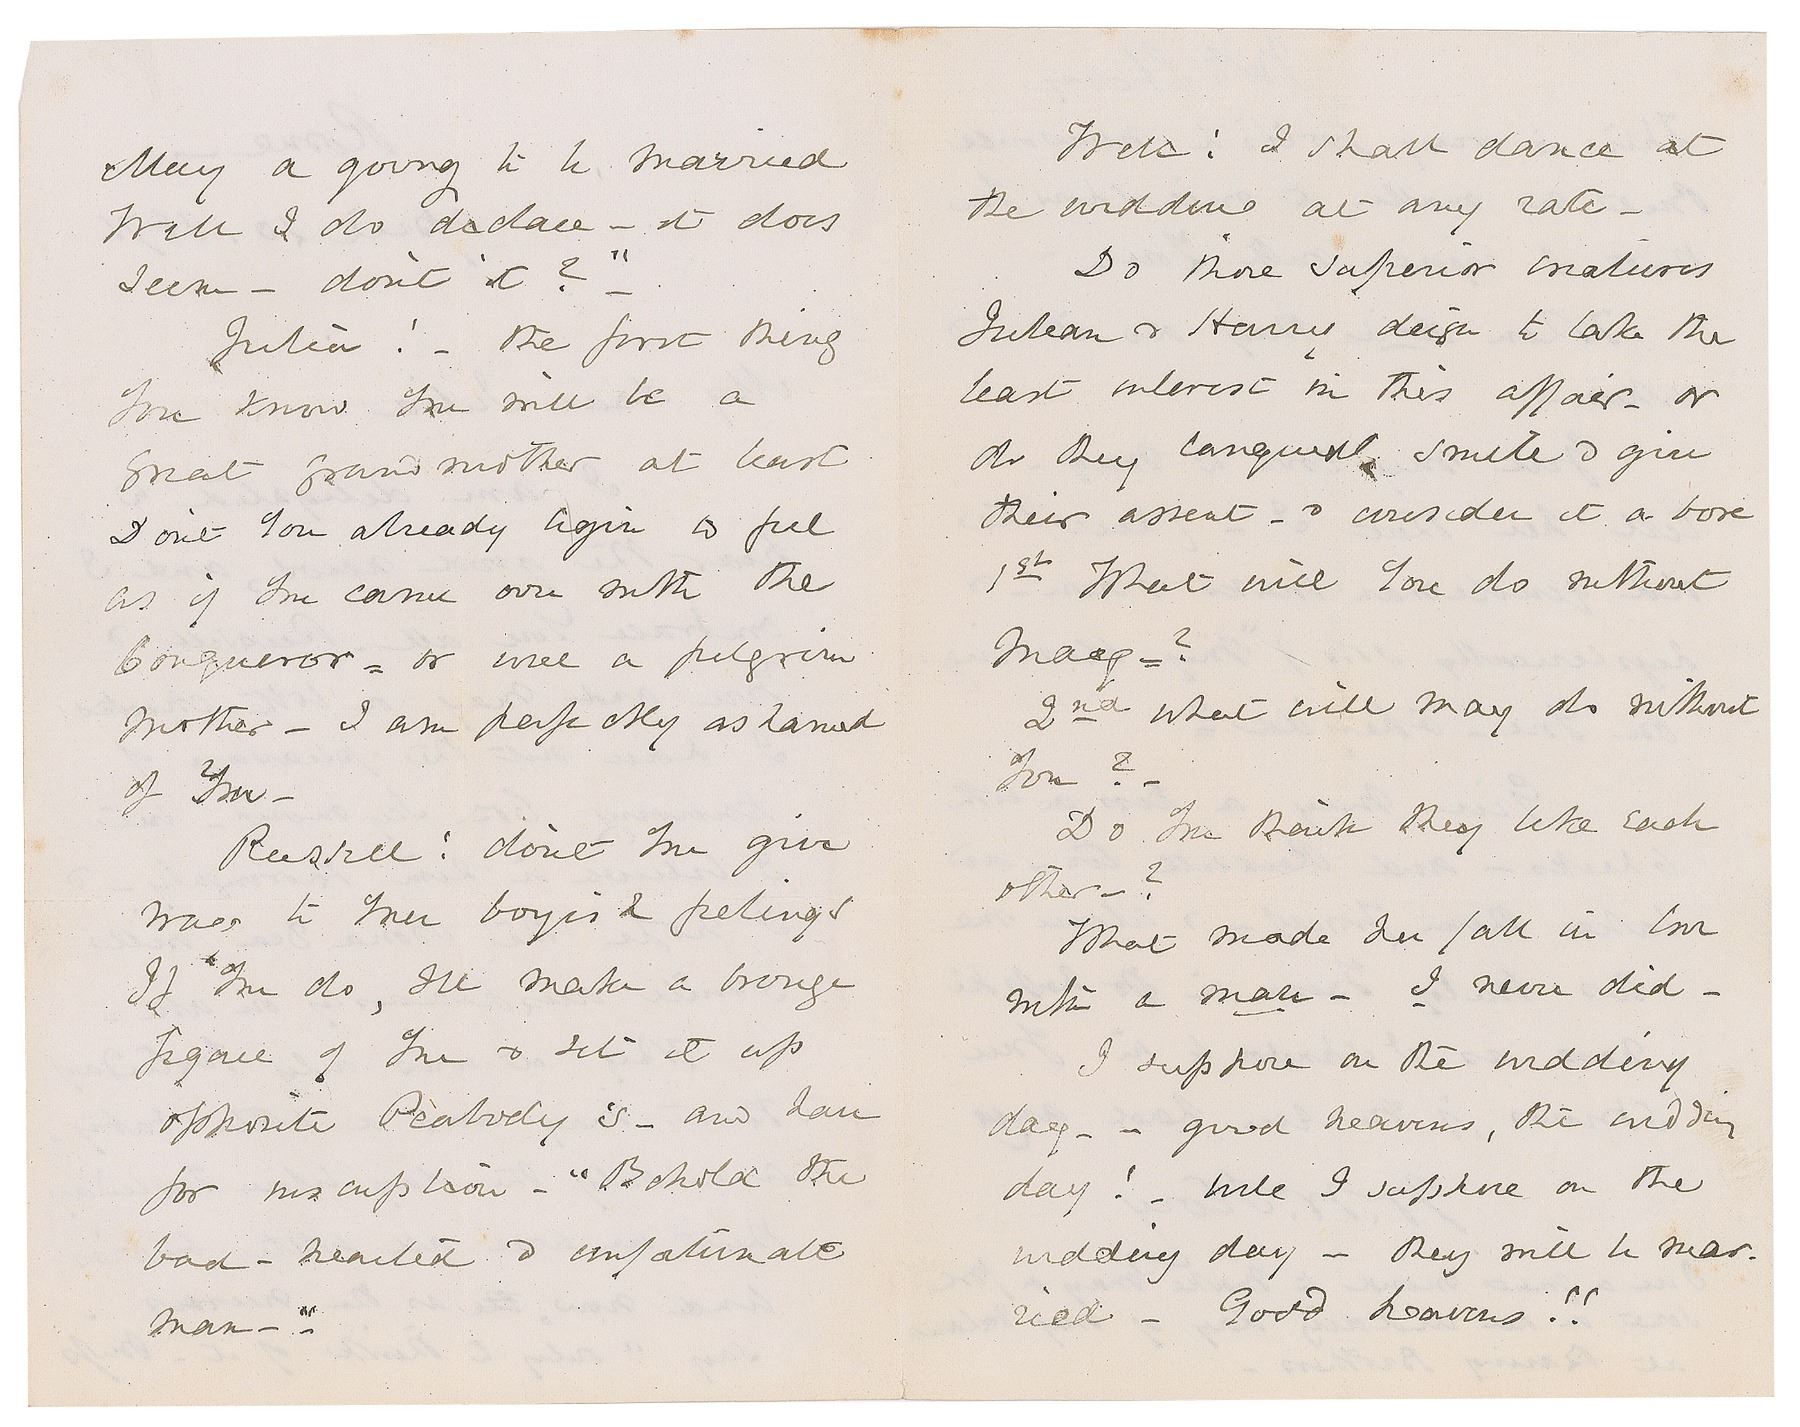 May a going to be married
Well I do declare — it does
seem — don't it? "—
Julia! — the first thing
you know you will be a
great grandmother at least
Don't you already begin to feel
as if you came over with the
Conqueror — or were a pilgrim
mother — I am perfectly ashamed
of you —
Russell! don't you give
way to your boyish feelings
If you do, I'll make a bronze
figure of you & set it up
opposite Peabody's — and have
for inscription — "Behold the
bad-hearted & unfortunate
man — "
Well! I shall dance at
the wedding at any rate —
Do those superior creatures
Julian & Harry deign to take the
least interest in this affair — or
do they languidly smile & give
their assent — & consider it a bore
1st What will you do without
May — ?
2nd what will May do without
you? —
Do you think they like each
other — ?
What made her fall in love
with a man — I never did —
I suppose on the wedding
day — — good heavens, the wedding
day! — well I suppose on the
wedding day — they will be mar-
ried — Good heavens!!